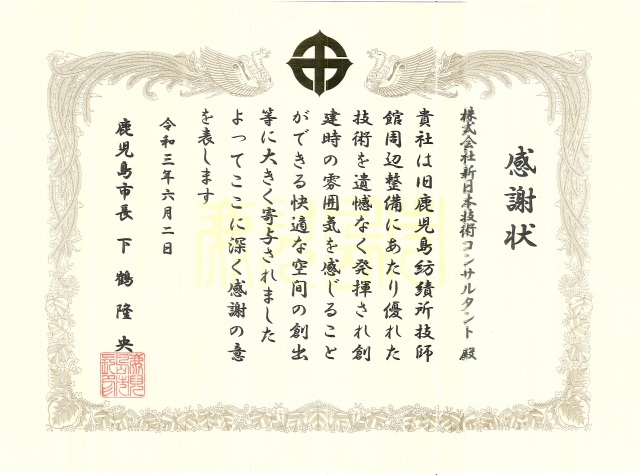 感謝状
株式会社新日本技術コンサルタント 殿
貴社は旧鹿児島紡績所技師
館周辺整備にあたり優れた
技術を遺憾なく発揮され創
建時の雰囲気を感じること
ができる快適な空間の創出
等に大きく寄与されました
よってここに深く感謝の意
を表します
令和三年六月二日
鹿児島市長 下鶴隆央